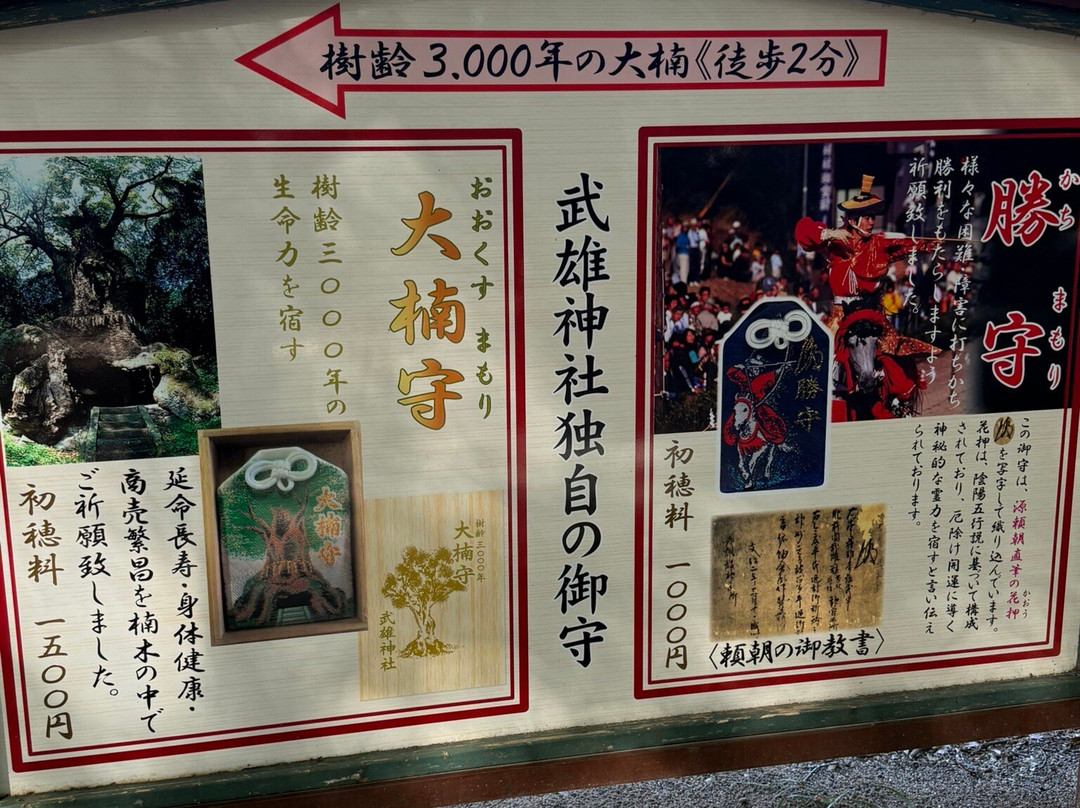 樹齢3.000年の大楠《徒歩2分》
武雄神社独自の御守
かちまもり
勝守
様々な困難・障害に打ちかち
勝利をもたらしますよう
祈願致しました。
勝守
この御守は、源頼朝直筆の花押
かおう
を写字して織り込んでいます。
花押は、陰陽五行説に基づいて構成
されており、厄除け開運に導く
神秘的な霊力を宿すと言い伝え
られております。
初穂料 一〇〇〇円
〈頼朝の御教書〉
おおくすまもり
大楠守
樹齢三〇〇〇年の
生命力を宿す
大楠守
樹齢三〇〇〇年
大楠守
武雄神社
延命長寿・身体健康・
商売繁昌を楠木の中で
ご祈願致しました。
初穂料 一五〇〇円